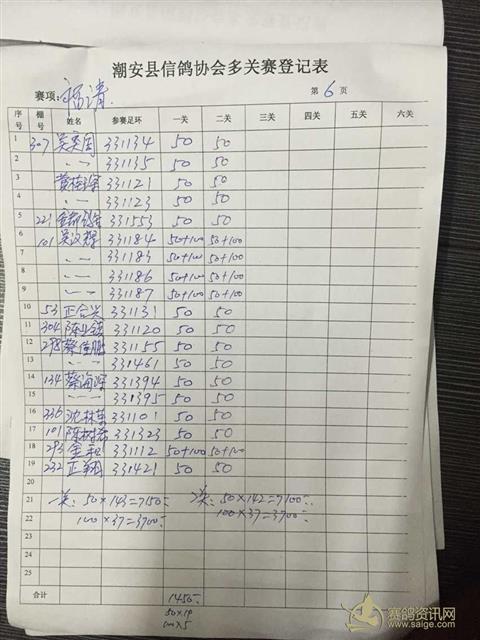 潮安县信鸽协会多关赛登记表
赛项: 第 6 页
序号 棚号 姓名 参赛足环 一关 二关 三关 四关 五关 六关
1 307 331134 50 50
2 331135 50 50
3 331121 50 50
4 331123 50 50
5 221 331553 50 50
6 101 吴汉辉 331184 50+100 50+100
7 331183 50+100 50+100
8 331186 50+100 50+100
9 331187 50+100 50+100
10 53 正合兴 331131 50 50
11 304 331120 50 50
12 298 蔡佳鹏 331155 50 50
13 331461 50 50
14 134 蔡海深 331394 50 50
15 331395 50 50
16 336 沈林 331101 50 50
17 101 陈树 331323 50 50
18 293 331112 50+100 50+100
19 232 正翔 331421 50 50
20
21 一关: 50×143=7150 二关: 50×142=7100
22 100×37=3700 100×37=3700
23
24
25
合计 1450
50×19
100×5
赛鸽资讯网
www.saige.com